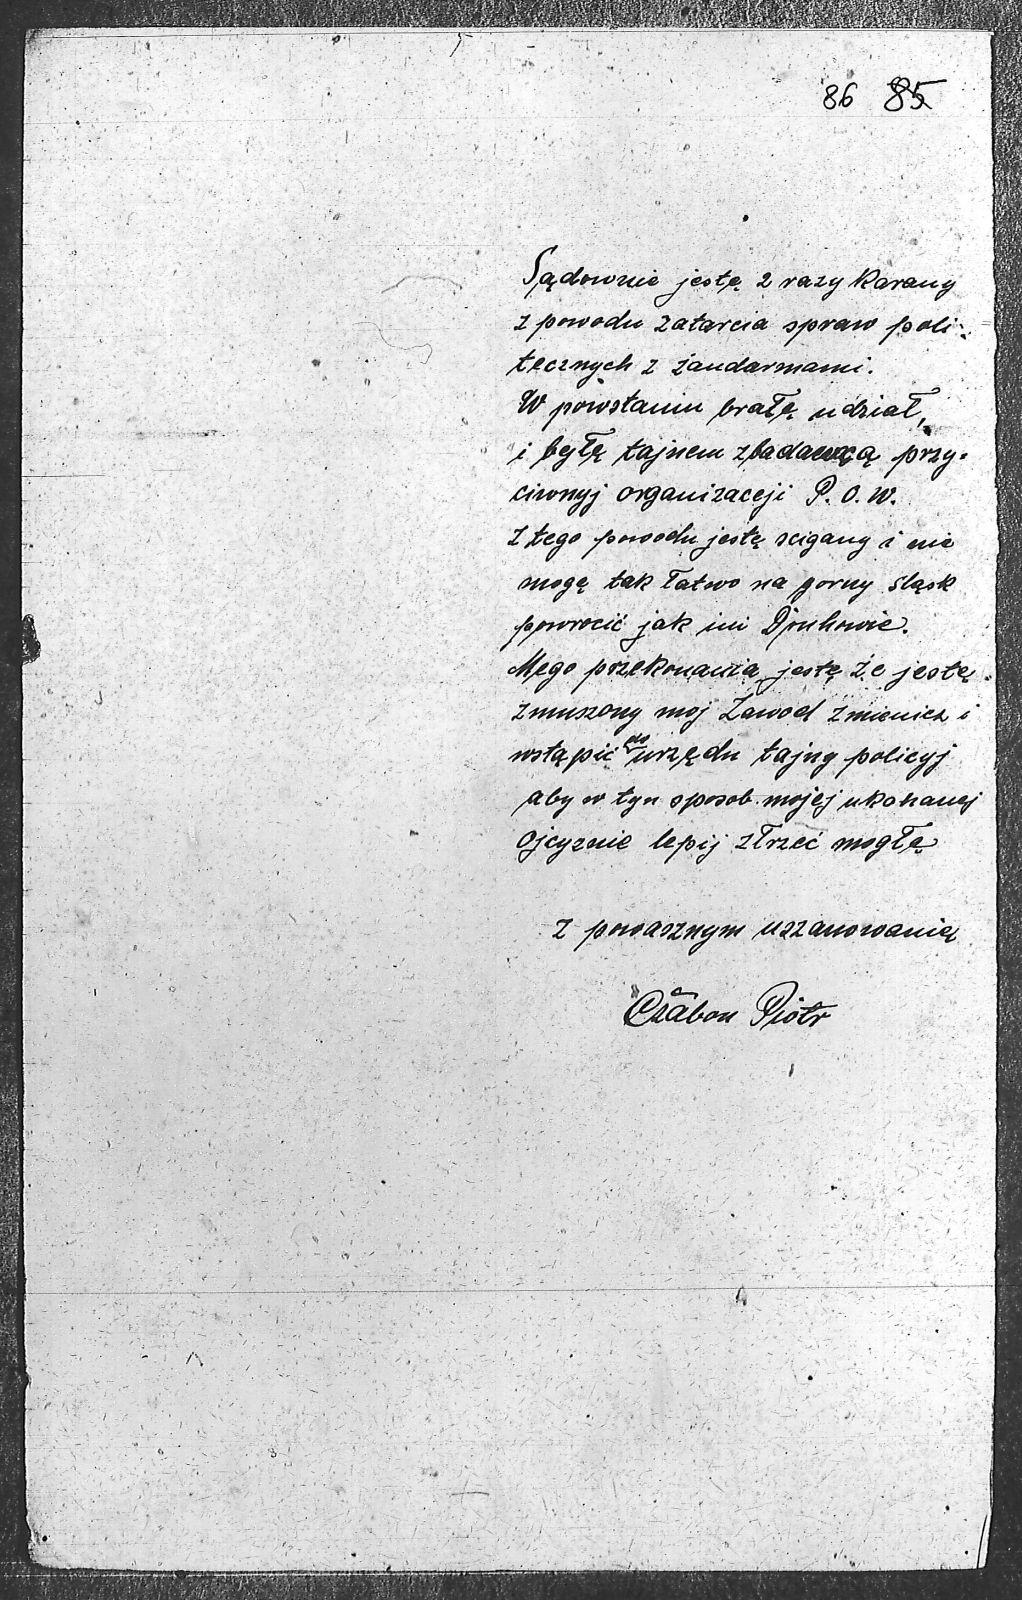 86 85
Sądownie jestę 2 razy karany
z powodu zatarcia spraw poli-
tecznych z żandarmami.
W powstaniu brałę udział,
i byłę tajnem zbadawcą przy-
ciwnyj organizaceji P. O. W.
Z tego powodu jestę scigany i nie
mogę tak łatwo na gorny śląsk
powrocić jak ini Druhowie.
Mego przekonania jestę że jestę
zmuszony moj Zawod zmienicz i
wstąpić do urzędu tajny policyj
aby w tyn sposob mojej ukohanej
Ojcyznie lepij złrzeć mogłę
z powasznym uszanowanię
Czabon Piotr